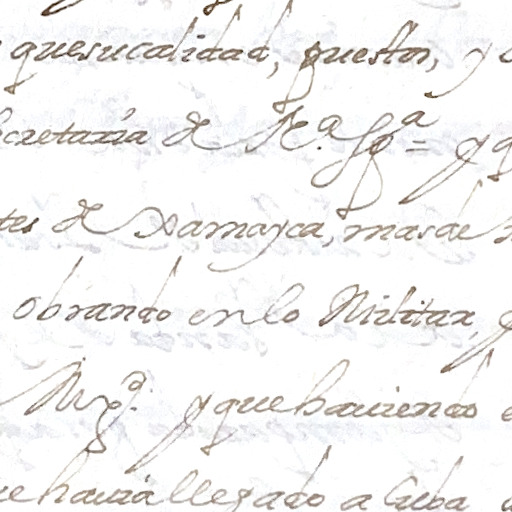 quesucalidad, puestos, y
secretaría de Na. Spa = y q
tes de Xamayca, mas de
obrando en lo Militar,
Mgd. y que haviendo
ue havía llegado a Cuba